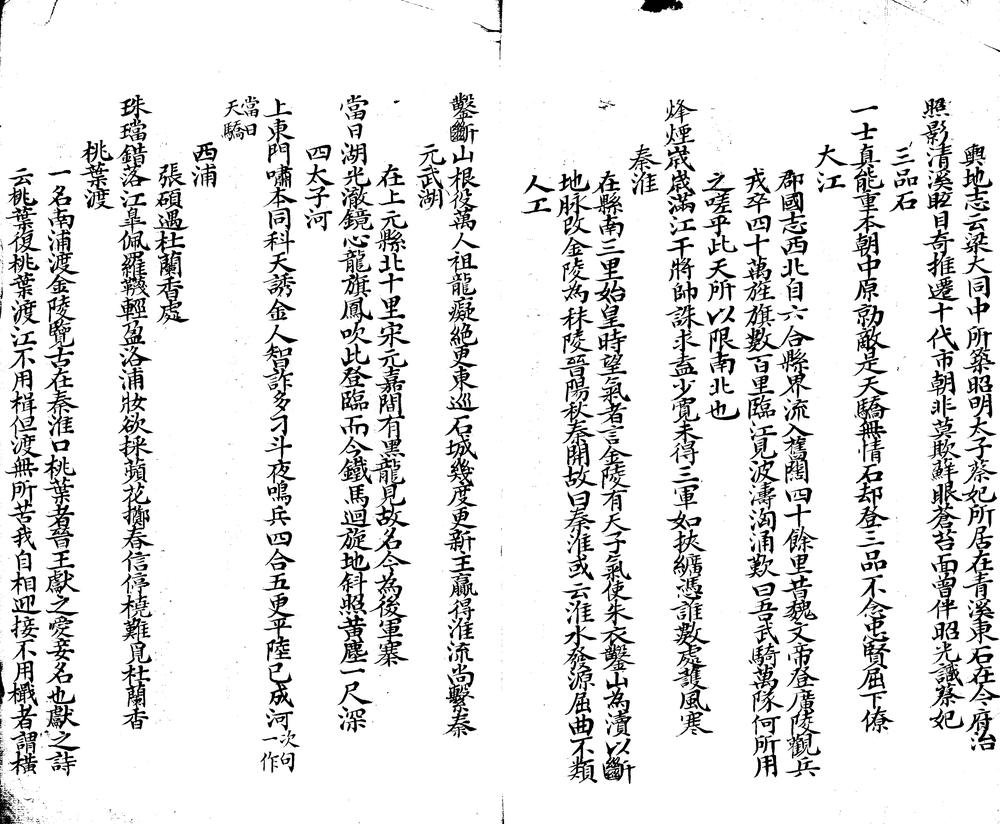 輿地志云梁大同中所築昭明太子蔡妃所居在青溪東石在今府治
照影清溪眩目奇推遷十代市朝非莫欺蘚眼蒼苔面曾伴昭光識蔡妃
三品石
一士真能重本朝中原勍敵是天驕無情石却登三品不念忠賢屈下僚
大江
郡國志西北自六合縣界流入舊闊四十餘里昔魏文帝登廣陵觀兵
戎卒四十萬旌旗數百里臨江見波濤洶涌歎曰吾武騎萬隊何所用
之嗟乎此天所以限南北也
烽煙歲歲滿江干將帥誅求盍少寛未得三軍如挾纊憑誰數處護風寒
秦淮
在縣南三里始皇時望氣者言金陵有天子氣使朱衣鑿山為瀆以斷
地脉改金陵為秣陵晉陽秋秦開故曰秦淮或云淮水發源屈曲不類
人工
鑿斷山根役萬人祖龍癡絶更東巡石城幾度更新王贏得淮流尚繫秦
元武湖
在上元縣北十里宋元嘉間有黒龍見故名今為後軍寨
當日湖光澈鏡心龍旗鳳吹此登臨而今鐵馬迴旋地斜照黃塵一尺深
四太子河
上東門嘯本同科天誘金人智詐多刁斗夜鳴兵四合五更平陸已成河次句一作
當日天驕
西浦
張碩遇杜蘭香處
珠璫錯落江臯佩羅韈輕盈洛浦妝欲採蘋花擲春信停橈難見杜蘭香
桃葉渡
一名南浦渡金陵覽古在秦淮口桃葉者晉王獻之愛妾名也獻之詩
云桃葉復桃葉渡江不用楫但渡無所苦我自相迎接不用檝者謂橫